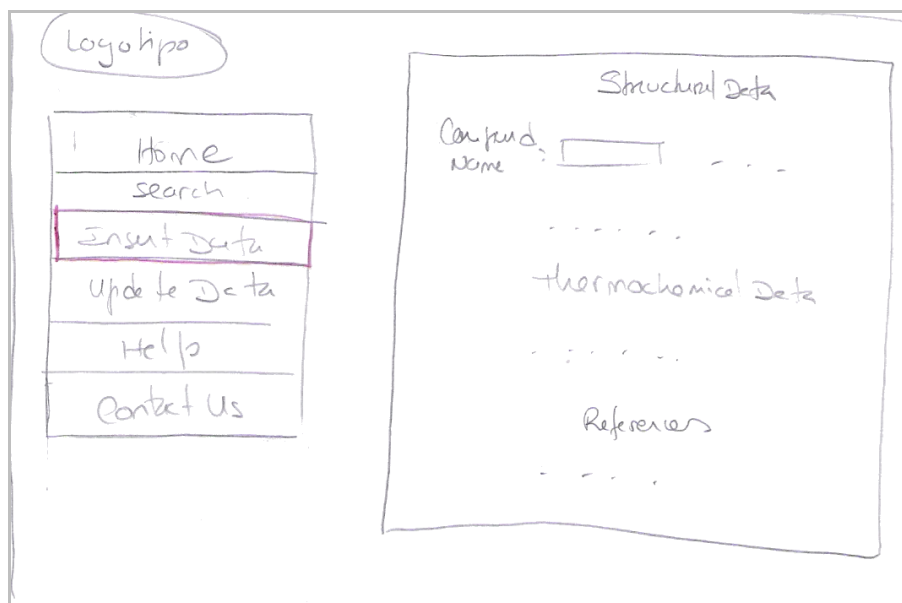 Logotipo
Home
Search
Insert Data
Update Data
Help
Contact Us
Structural Data
Compund
Name :
thermochemical Data
References